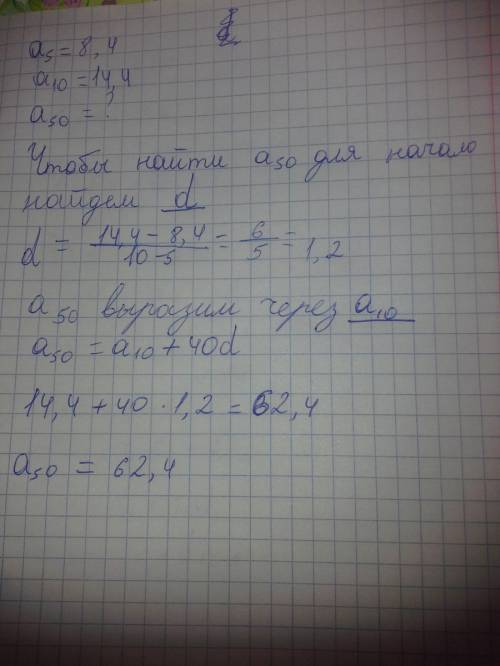 a₅ = 8,4
a₁₀ = 14,4
a₅₀ = ?
Чтобы найти a₅₀ для начало
найдем d
d = (14,4 - 8,4)/(10-5) = 6/5 = 1,2
a₅₀ выразим через a₁₀
a₅₀ = a₁₀ + 40d
14,4 + 40 · 1,2 = 62,4
a₅₀ = 62,4